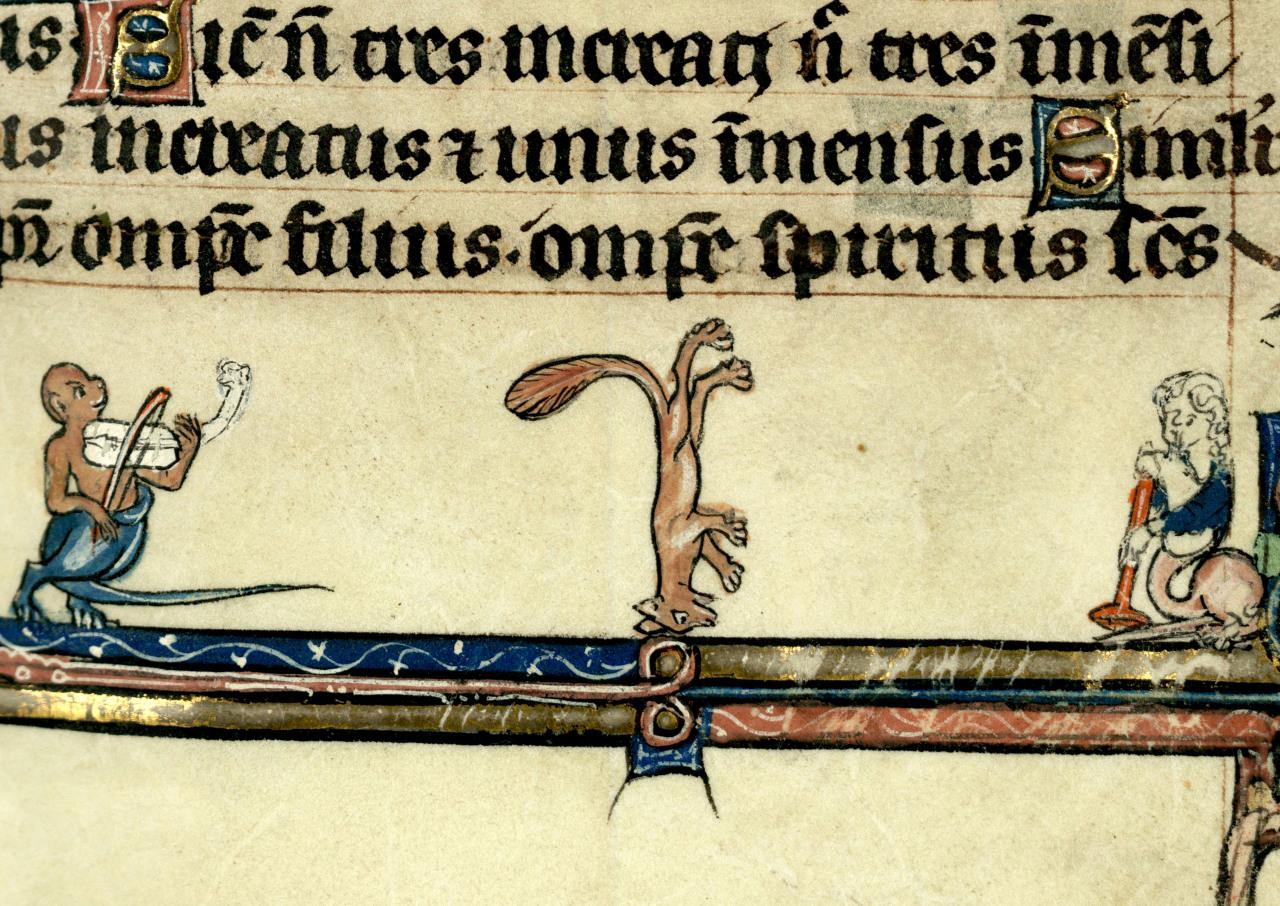 us Sic̄ n̄ tres increati n̄ tres īmēsi
us increatus ⁊ unus īmensus Simili
pr̄ omp̄s filius. omp̄s spiritus sc̄s